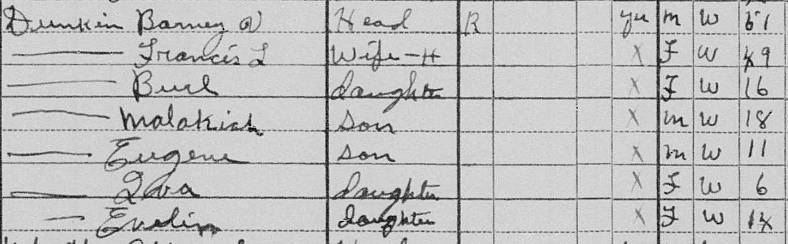 Dunkin Barney W Head R yes M W 51
— Francis L Wife-H X F W 49
— Burl daughter X F W 16
— Malakiah son X M W 18
— Eugene son X M W 11
— Iva daughter X F W 6
— Evelin daughter X F W 14